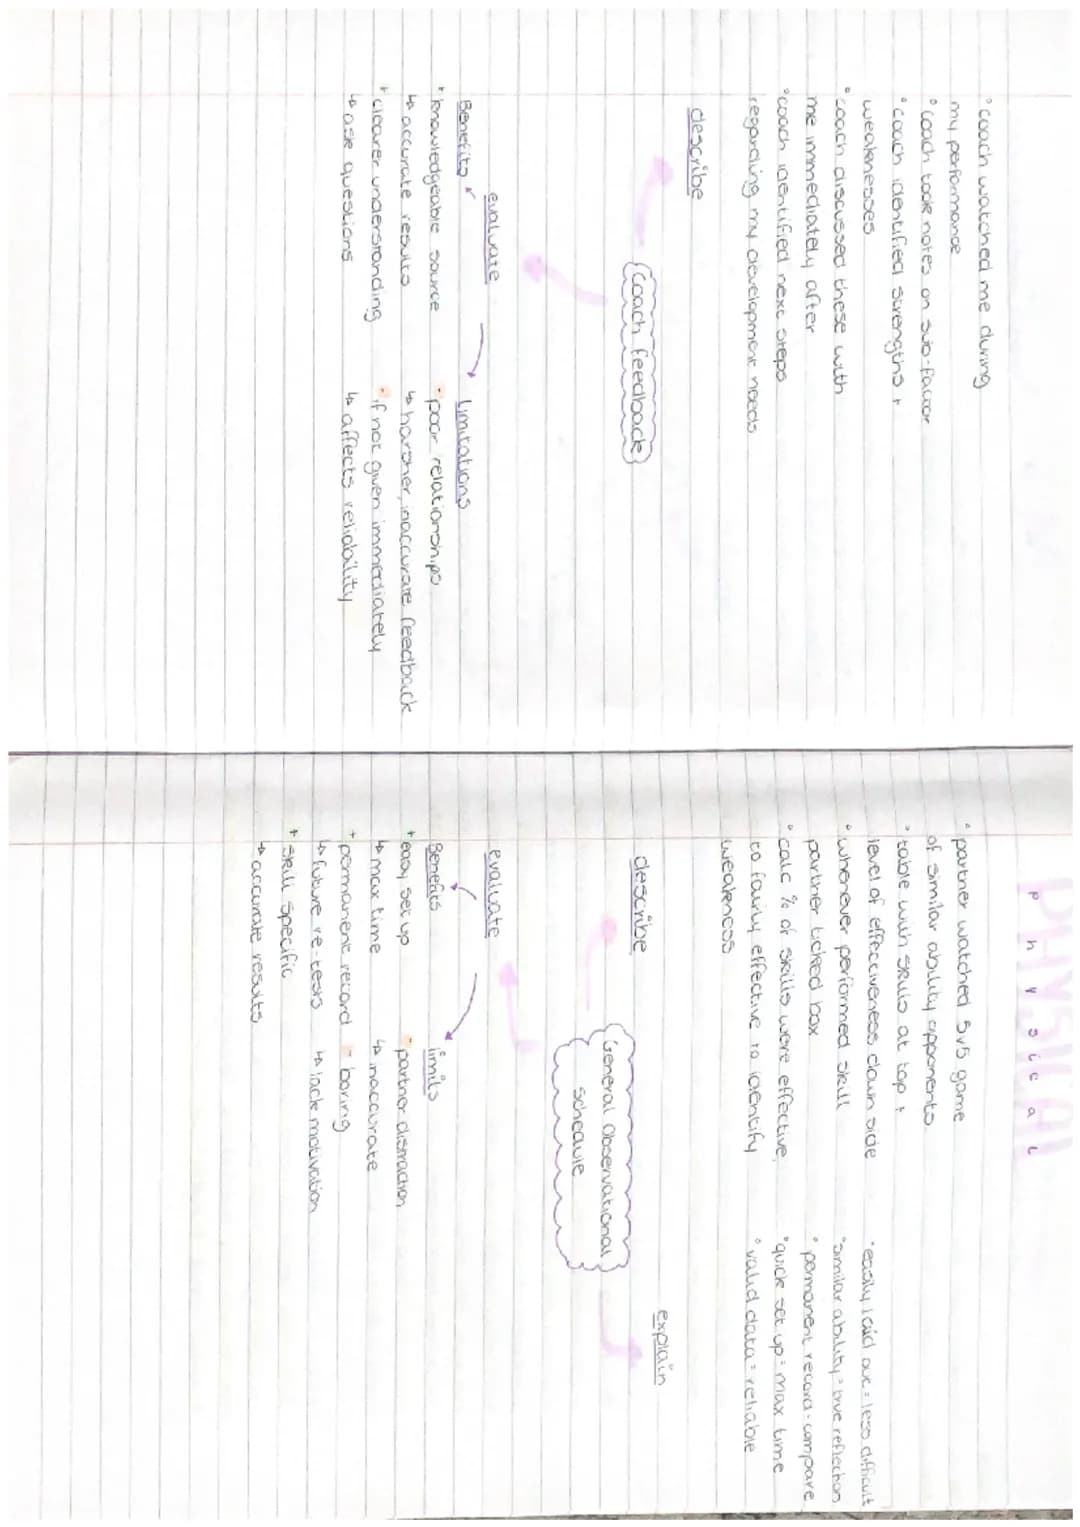 PHYSICAL
physical
° coach watched me during
my performance
° coach took notes on sub-factor
° coach identified strengths +
weaknesses
° coach discussed these with
me immediately after
° coach identified next steps
regarding my development needs
describe
Coach feedback
evaluate
Benefits
+ knowledgeable source
↳ accurate results
+ clearer understanding
↳ ask questions
Limitations
- poor relationships
↳ harsher, inaccurate feedback
- if not given immediately
↳ affects reliability
° partner watched 5v5 game
of similar ability opponents
° table with skills at top +
level of effectiveness down side
° whenever performed skill
partner ticked box
° calc % of skills were effective,
to fairly effective to identify
weakness
describe
° easily laid out = less difficult
° similar ability = true reflection
° permanent record = compare
° quick set up = max time
° valid data = reliable
explain
General Observational
schedule
evaluate
Benefits
+ easy set up
↳ max time
+ permanent record
↳ future re-tests
+ skill specific
↳ accurate results
limits
- partner distraction
↳ inaccurate
- boring
↳ lack motivation